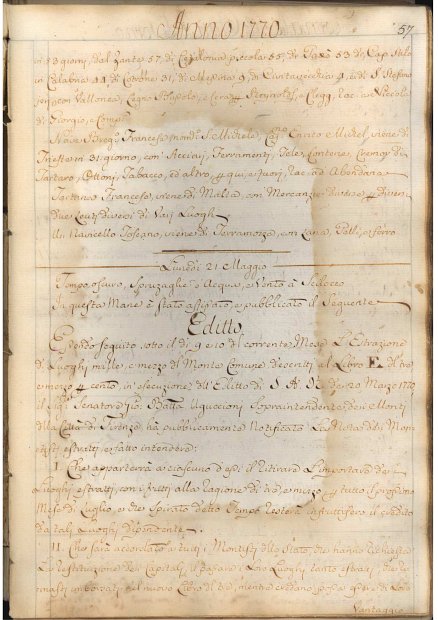 Anno 1770
57
in 83 giorni, dal Zante 57, di Cefalonia piccola 55, di Paxò 53, di Cap. Stilo
in Calabria 44, di Cotrone 31, di Messina 9, di Civitavecchia 4, e di S. Stefano
jeri, con Vallonea,
di Giorgio, e Comp.
Nave Francese nom. S. Michele, Cap. Enrico Michel, viene di
Trieste in 31 giorno, con Acciari, Ferramenti, Tele, Conterie, Cremor di
Tartaro, Ottoni, Tabacco, ed altro, qui, e fuori, Rac. a
Tartana Francese, viene di Malta, con Mercanzie diverse,
due Leuti diversi di Varj Luoghi
Un Navicello Toscano, viene di Terramozza, con Lana, Pelli, e ferro
Lunedì 21 Maggio
Tempo oscuro, Spruzzaglie d'Acqua, e Vento a Scilocco
In questa Mane è stato affissato, e pubblicato il Seguente
Editto
Essendo seguito sotto il dì 9 e 10 di corrente Mese L'Estrazione
di Luoghi mille, e mezzo del Monte Comune descritti al Libro E del tre
e mezzo p cento, in esecuzione dell'Editto di S. A. R. de' 20 Marzo 1770
il Sig. Senatore Gio. Batta Uguccioni Sopraintendente dei Monti
della Città di Firenze, ha pubblicamente Notificato La Nota dei Mon=
tisti estratti, e fatto intendere:
I. Che apparterrà a ciascuno d'essi il Ritirare L'importare dei
Luoghi estratti, con i frutti alla Ragione di tre, e mezzo p tutto il prossimo
Mese di Luglio, e che spirato detto Tempo resterà infruttifero il credito
da tali Luoghi dipendente.
II. Che sarà accordato a tutti i Montisti dello Stato, che hanno richiesta
La Restituzione dei Capitali, il passare i loro Luoghi tanto estratti, che ri=
masti al nuovo Libro di tre, mentre credano possa essere di Loro
Vantaggio